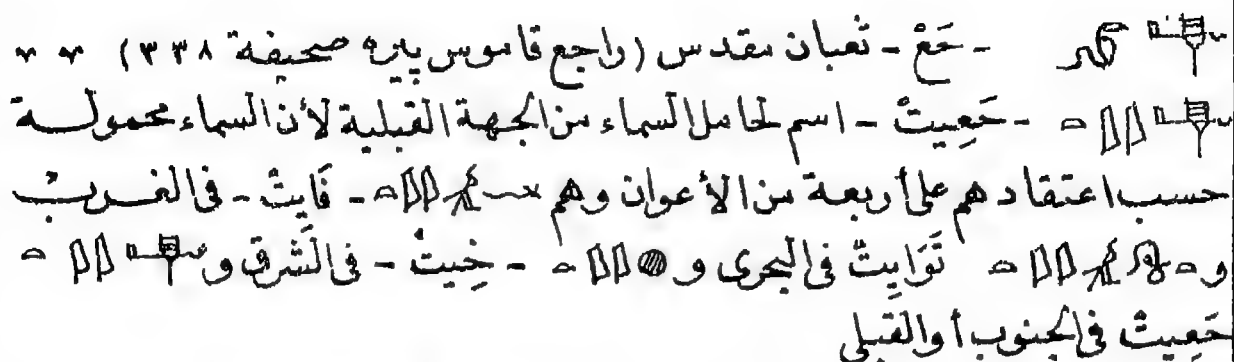 - حَعْ - ثعبان مقدس (راجع قاموس پيره صحيفة ٣٣٨) ٧ ٧
- حَعِيتْ - اسم لحامل السماء من الجهة القبلية لأن السماء محمولة
حسب اعتقادهم على أربعة من الأعوان وهم - فَايِتْ - فى الغرب
و تَوَايِتْ فى البحرى و - خِيتْ - فى الشرق و
حَعِيتْ فى الجنوب أو القبلى